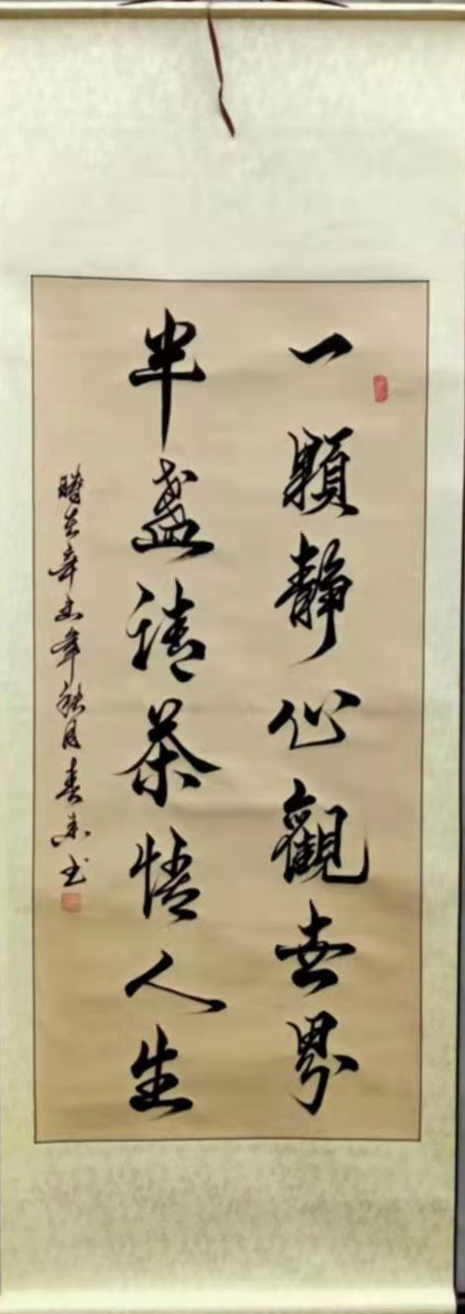 一顆靜心觀世界
半盞清茶情人生
時在辛丑年秋月春来书